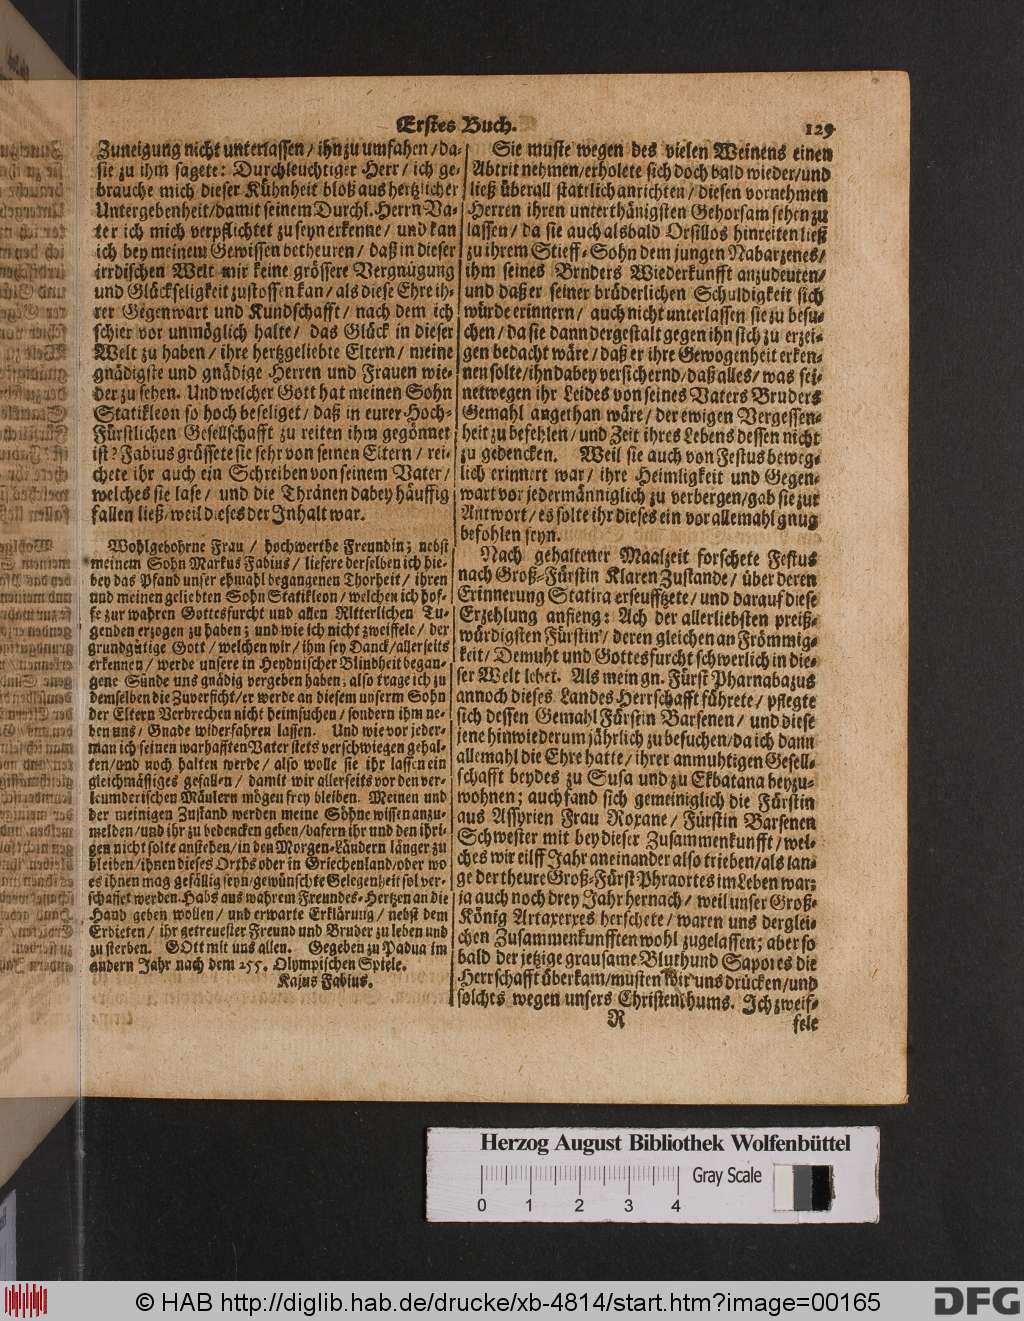 Erstes Buch.
129
Zuneigung nicht unterlassen / ihn zu umfahen / da-
sie zu ihm sagete: Durchleuchtiger Herr / ich ge-
brauche mich dieser Kühnheit bloß aus hertzlicher
Untergebenheit / damit seinem Durchl. Herrn Va-
ter ich mich verpflichtet zu seyn erkenne / und kan
ich bey meinem Gewissen betheuren / daß in dieser
irrdischen Welt mir keine grössere Vergnügung
und Glückseligkeit zustossen kan / als diese Ehre ih-
rer Gegenwart und Kundschafft / nach dem ich
schier vor unmöglich halte / das Glück in dieser
Welt zu haben / ihre hertzgeliebte Eltern / meine
gnädigste und gnädige Herren und Frauen wie-
der zu sehen. Und welcher Gott hat meinen Sohn
Statikleon so hoch beseliget / daß in eurer Hoch-
Fürstlichen Gesellschafft zu reiten ihm gegönnet
ist? Fabius grössete sie sehr von seinen Eltern / rei-
chete ihr auch ein Schreiben von seinem Vater /
welches sie lase / und die Thränen dabey häuffig
fallen ließ / weil dieses der Inhalt war.
Wohlgebohrne Frau / hochwerthe Freundin; nebst
meinem Sohn Markus Fabius / liefere derselben ich hie-
bey das Pfand unser ehmahl begangenen Thorheit / ihren
und meinen geliebten Sohn Statikleon / welchen ich hof-
fe zur wahren Gottesfurcht und allen Ritterlichen Tu-
genden erzogen zu haben; und wie ich nicht zweiffele / der
grundgütige Gott / welchen wir / ihm sey Danck / allerseits
erkennen / werde unsere in Heydnischer Blindheit began-
gene Sünde uns gnädig vergeben haben; also trage ich zu
demselben die Zuversicht / er werde an diesem unserm Sohn
der Eltern Verbrechen nicht heimsuchen / sondern ihm ne-
ben uns / Gnade widerfahren lassen. Und wie vor jeder-
man ich seinen warhafften Vater stets verschwiegen gehal-
ten / und noch halten werde / also wolle sie ihr lassen ein
gleichmässiges gefallen / damit wir allerseits vor den ver-
leumderischen Mäulern mögen frey bleiben. Meinen und
der meinigen Zustand werden meine Söhne wissen anzu-
melden / und ihr zu bedencken geben / dafern ihr und den ihri-
gen nicht solte anstehen / in den Morgen-Ländern länger zu
bleiben / ihnen dieses Orths oder in Griechenland / oder wo
es ihnen mag gefällig seyn / gewünschte Gelegenheit sol ver-
schaffet werden. Habs aus wahrem Freundes-Hertzen an die
Hand geben wollen / und erwarte Erklärung / nebst dem
Erbieten / ihr getreuester Freund und Bruder zu leben und
zu sterben. GOtt mit uns allen. Gegeben zu Padua im
andern Jahr nach dem 255. Olympischen Spiele.
Kajus Fabius.
Sie muste wegen des vielen Weinens einen
Abtrit nehmen / erholete sich doch bald wieder / und
ließ überall statelich anrichten / diesen vornehmen
Herren ihren unterthänigsten Gehorsam sehen zu
lassen / da sie auch alsbald Orsillos hinreiten ließ
zu ihrem Stieff-Sohn dem jungen Nabarzenes /
ihm seines Bruders Wiederkunfft anzudeuten /
und daß er seiner brüderlichen Schuldigkeit sich
würde erinnern / auch nicht unterlassen sie zu besu-
chen / da sie dann dergestalt gegen ihn sich zu erzei-
gen bedacht wäre / daß er ihre Gewogenheit erken-
nen solte / ihn dabey versichernd / daß alles / was sei-
netwegen ihr Leides von seines Vaters Bruders
Gemahl angethan wäre / der ewigen Vergessen-
heit zu befehlen / und Zeit ihres Lebens dessen nicht
zu gedencken. Weil sie auch von Festus beweg-
lich erinnert war / ihre Heimligkeit und Gegen-
wart vor jedermänniglich zu verbergen / gab sie zur
Antwort / es solte ihr dieses ein vor allemahl gnug
befohlen seyn.
Nach gehaltener Maalzeit forschete Festus
nach Groß-Fürstin Klaren Zustande / über deren
Erinnerung Statira erseuffzete / und darauf diese
Erzehlung anfieng: Ach der allerliebsten preiß-
würdigsten Fürstin / deren gleichen an Frömmig-
keit / Demuht und Gottesfurcht schwerlich in die-
ser Welt lebet. Als mein gn. Fürst Pharnabazus
annoch dieses Landes Herrschafft führete / pflegte
sich dessen Gemahl Fürstin Barsenen / und diese
jene hinwiederum jährlich zu besuchen / da ich dann
allemahl die Ehre hatte / ihrer anmuhtigen Gesell-
schafft beydes zu Susa und zu Ekbatana beyzu-
wohnen; auch fand sich gemeiniglich die Fürstin
aus Assyrien Frau Roxane / Fürstin Barsenen
Schwester mit bey dieser Zusammenkunfft / wel-
ches wir eilff Jahr aneinander also trieben / als lan-
ge der theure Groß-Fürst Phraortes im Leben war;
ja auch noch drey Jahr hernach / weil unser Groß-
König Artaxerxes herschete / waren uns derglei-
chen Zusammenkunfften wohl zugelassen; aber so
bald der jetzige grausame Bluthund Sapores die
Herrschafft überkam / musten wir uns drücken / und
solches wegen unsers Christenthums. Ich zweif-
R
fele
Herzog August Bibliothek Wolfenbüttel
Gray Scale
0 1 2 3 4
© HAB http://diglib.hab.de/drucke/xb-4814/start.htm?image=00165
DFG